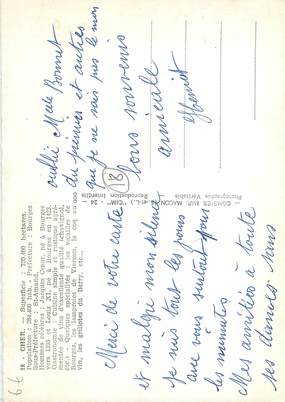 18 - CHER. — Superficie : 720.000 hectares.
Population : 284.400 hab. - Préfecture : Bourges
Sous-Préfecture : St-Amand.
Hommes célèbres : Jacques Cœur, né à Bourges
vers 1395 et Louis XI, né à Bourges en 1423.
Gastronomie : Cuisine simple et rustique agré-
mentée de vins d'excellente qualité (Chavignol,
etc.) - Quelques spécialités : les sablés de
Bourges, les lamproies de Vierzon, le coq au
vin, les grillons du Berry, etc...
Merci de votre carte
et malgré mon silence
je suis tout les jours
avec vous surtout pour
les
Mes amitiés à toute
ses Dames sans
COMBIER IMP. MACON (S.-et-L.) "CIM"
Photographie Véritable
Reproduction Interdite
18
oublié Mde Bonnet
du premier et autres
que je ne sais pas le nom
bons souvenirs
amicale